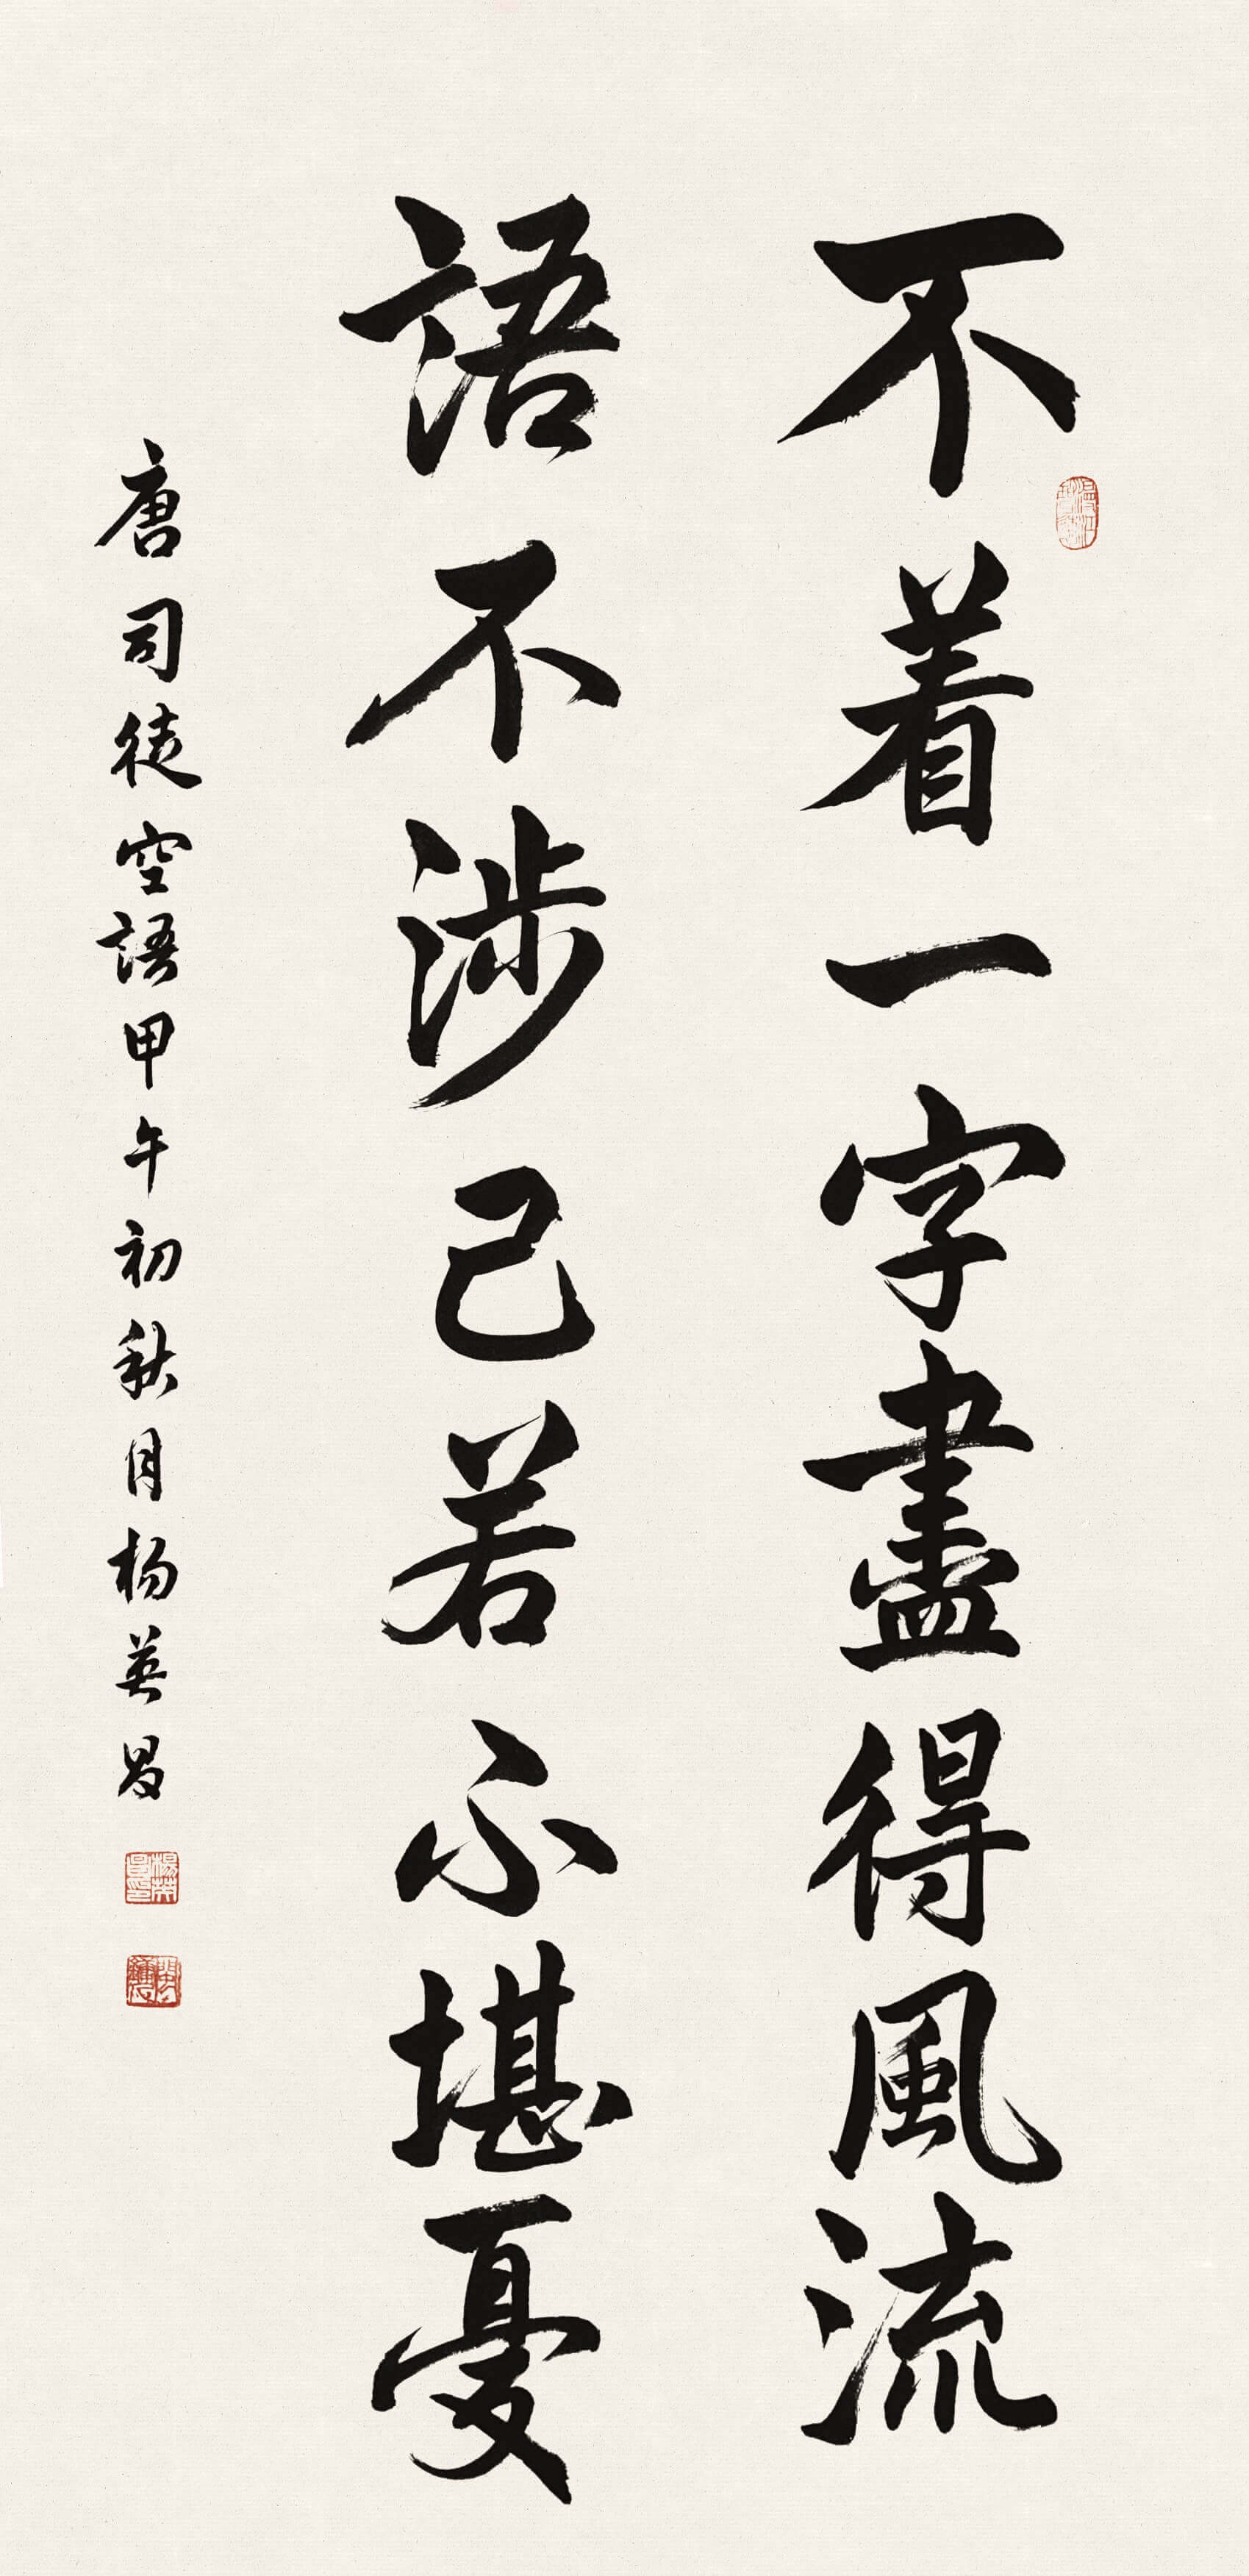 不着一字盡得風流
語不涉己若不堪憂
唐司徒空語甲午初秋月杨英昌